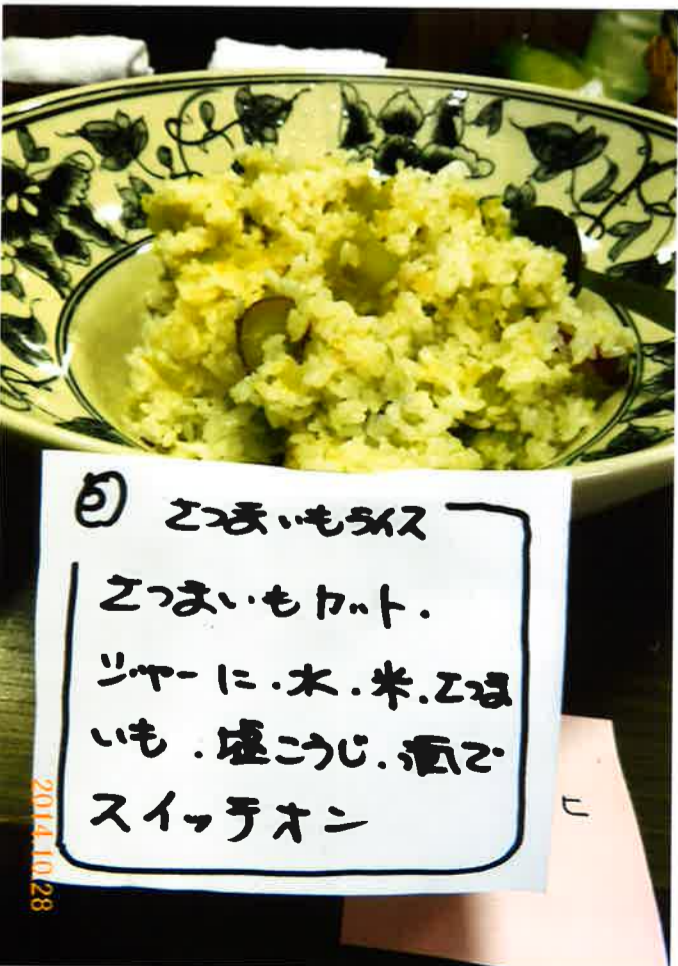 ⑤ さつまいもライス
さつまいもカット.
ジャーに.水.米.さつま
いも.塩こうじ.酒で
スイッチオン
2014.10.28